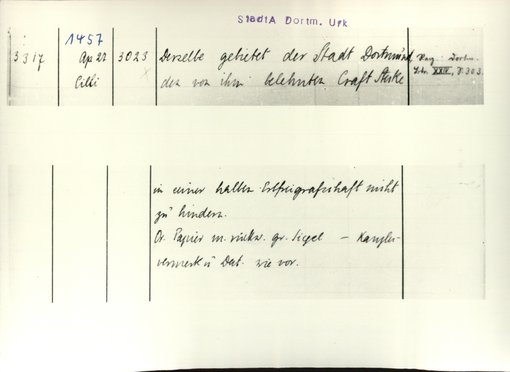 StadtA Dortm. Urk
1457
3317 Ap 22 3023 Derselbe gebietet der Stadt Dortmund Reg. Dortm.
Cilli den von ihm belehnten Craft Stecke XXIV, S. 303.
in seiner halben Erbfreigrafschaft nicht
zu hindern.
Or. Papier m. rückw. gr. Siegel – Kanzlei-
vermerk u. Dat. wie vor.